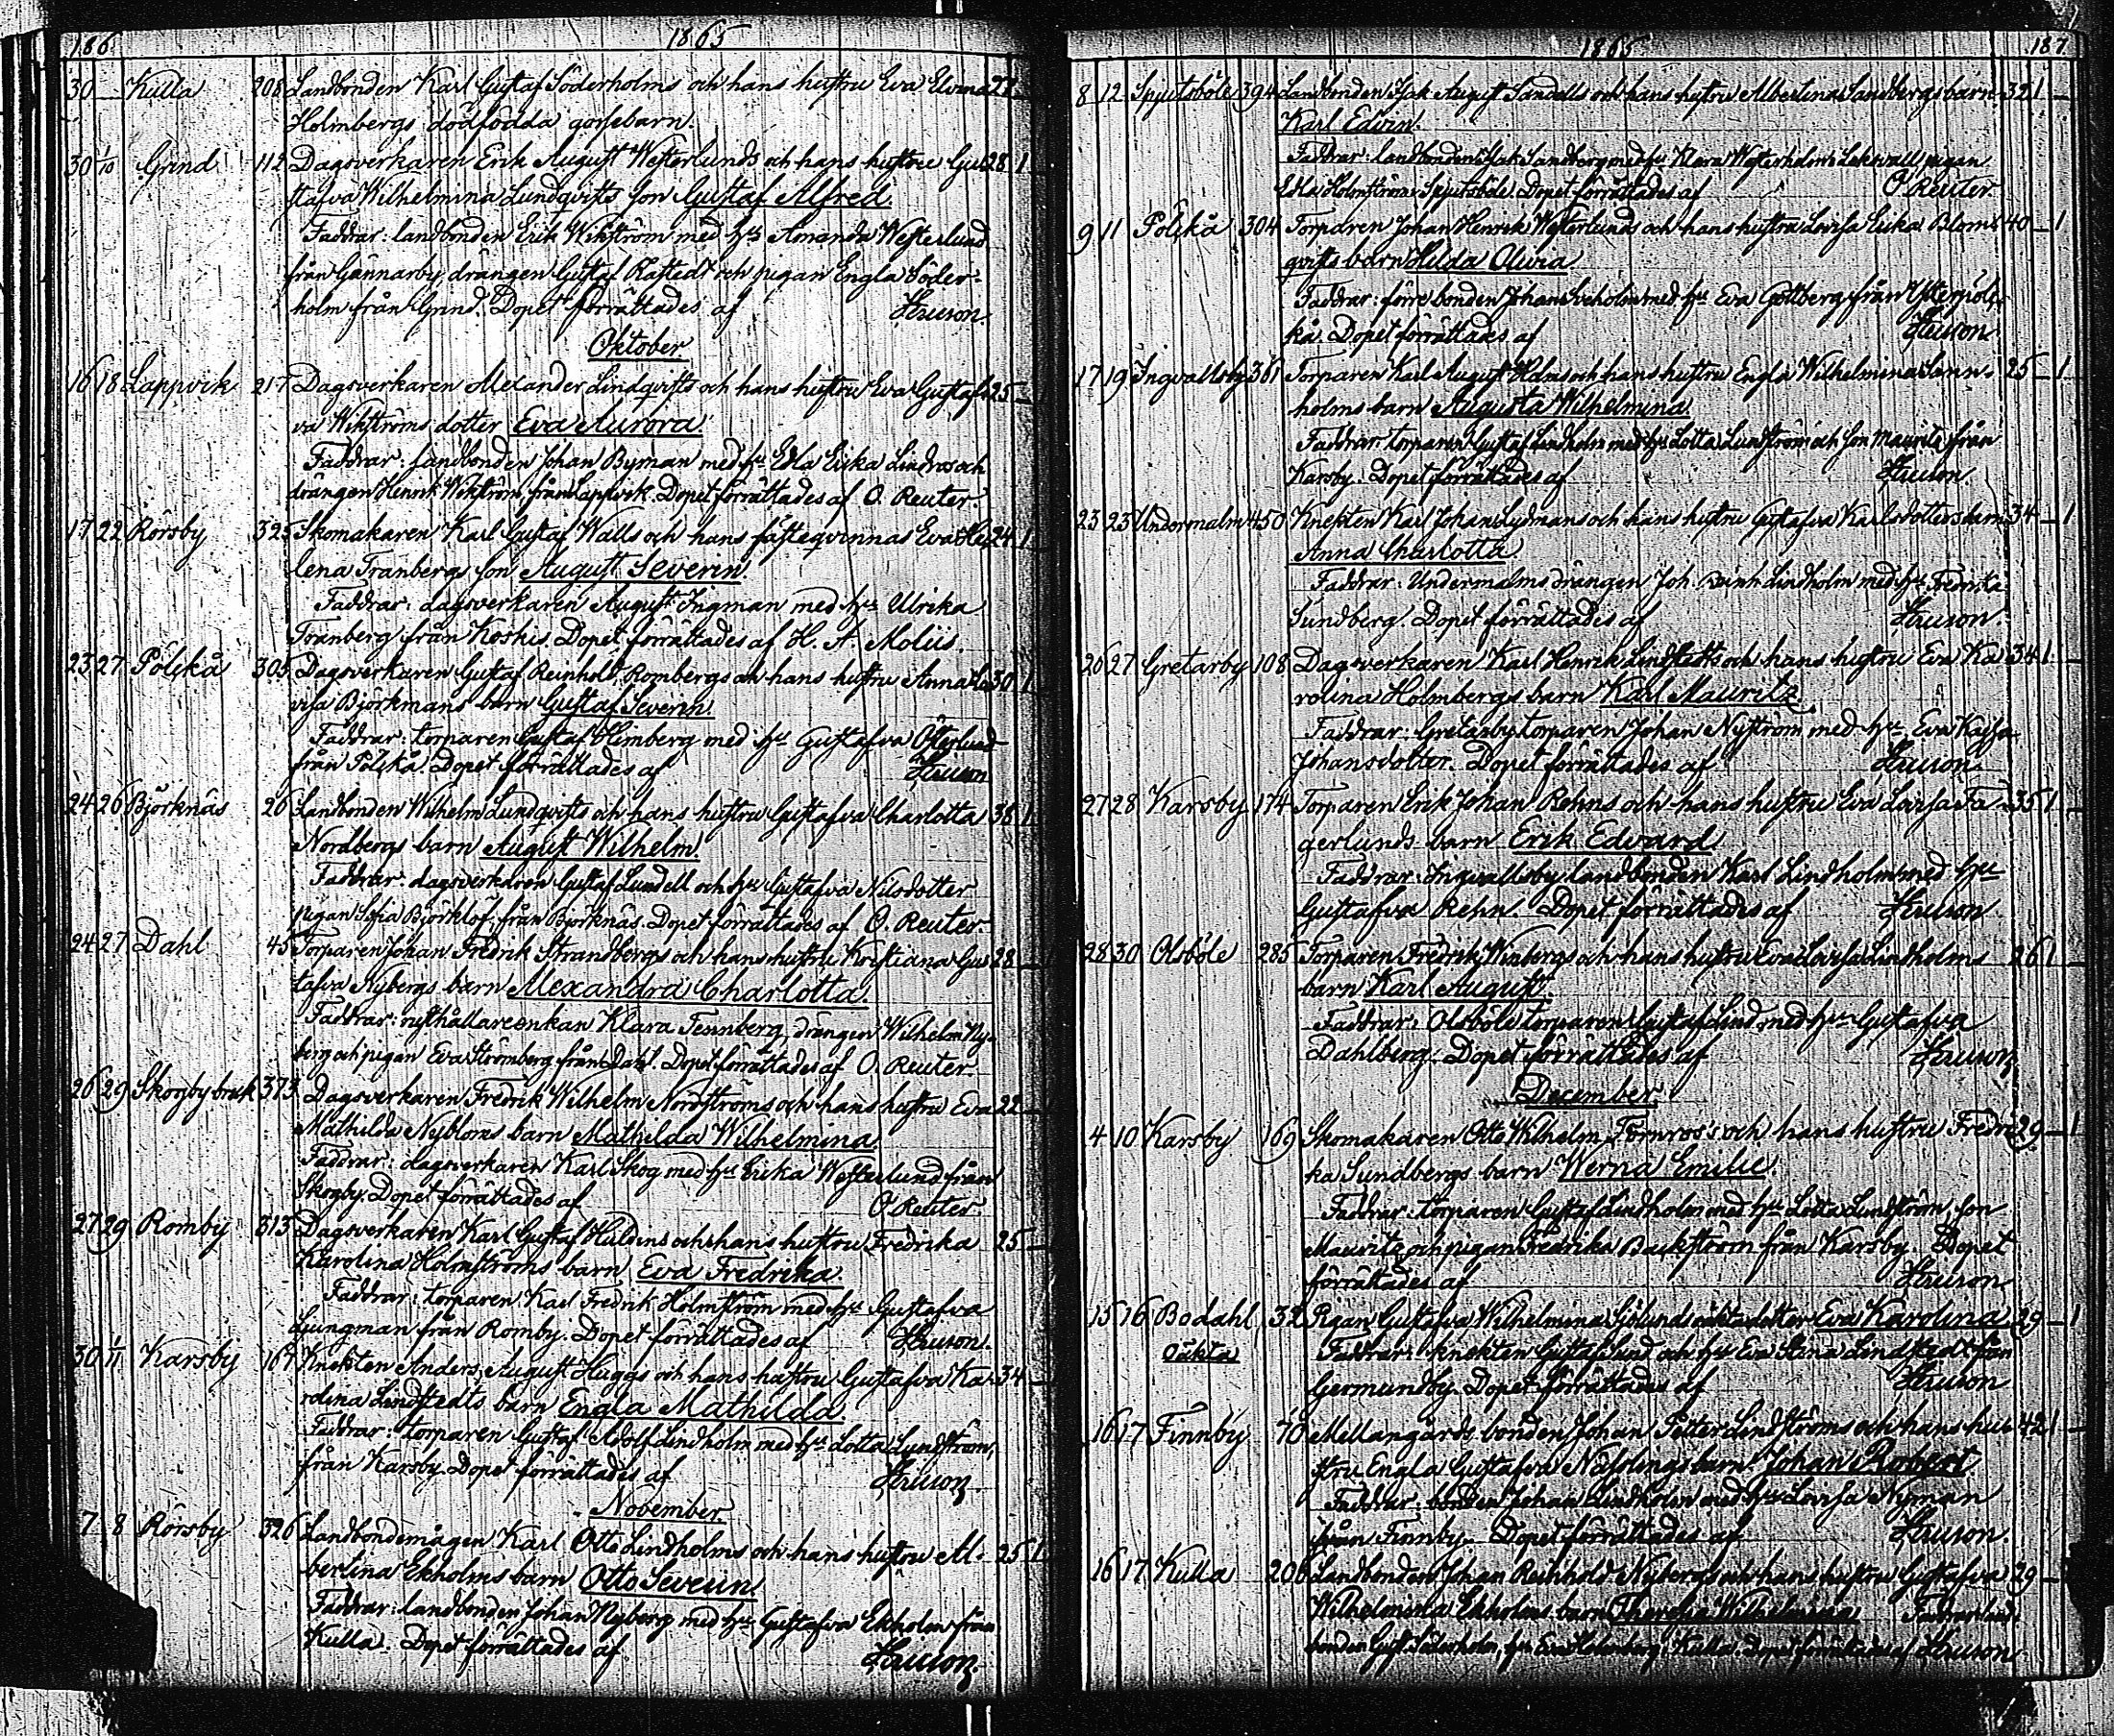 186 1865
30 Kulla 208 Landbonden Karl Gustaf Söderholms och hans hustru Eva Elvina 27
Holmbergs dödfödda gossebarn.
30 1/10 Grind 112 Dagsverkaren Erik August Westerlunds och hans hustru Gu- 28 1
stafva Wilhelmina Lundqvists son Gustaf Alfred.
Faddrar: landbonden Erik Wikström med h:s Amanda Westerlund
från Gännarby, drängen Gustaf och pigan Engla Söder-
holm från Grind. Dopet förrättades af
Oktober
16 18 Lappvik 217 Dagsverkaren Alexander Lindqvists och hans hustru Eva Gustaf- 25
va Wikströms dotter Eva Aurora
Faddrar: landbonden Johan Byman med h:s Edla Erika Lindros och
drängen Henrik Wikström, från Lappvik. Dopet förrättades af O. Reuter.
17 22 Rörsby 325 Skomakaren Karl Gustaf Walls och hans fästeqvinnas Eva He- 24 1
lena Tranbergs son August Severin.
Faddrar: dagsverkaren August Ingman med h:s Ulrika
Tranberg från Koskis. Dopet förrättades af H. A. Moliis.
23 27 Pölskå 305 Dagsverkaren Gustaf Reinhold Rombergs och hans hustru Anna Lo- 30 1
visa Björkmans barn Gustaf Severin.
Faddrar: torparen Gustaf Holmberg med h:s Gustafva Österlund
från Pölskå. Dopet förrättades af
24 26 Björknäs 26 Landbonden Wilhelm Lundqvists och hans hustru Gustafva Charlotta 38 1
Nordbergs barn August Wilhelm.
Faddrar: dagsverkaren Gustaf Lundell och h:s Gustafva Nilsdotter
pigan Sofia Björklöf, från Björknäs. Dopet förrättades af O. Reuter.
24 27 Dahl 45 Torparen Johan Fredrik Strandbergs och hans hustru Kristiana Gus- 28
tafva Nybergs barn Alexandra Charlotta.
Faddrar: rusthållareenkan Klara Tennberg, drängen Wilhelm Ny-
berg och pigan Eva Strömberg från Dahl. Dopet förrättades af O. Reuter.
26 29 Skogby bruk 373 Dagsverkaren Fredrik Wilhelm Nordströms och hans hustru Eva 22
Mathilda Nybloms barn Mathilda Wilhelmina
Faddrar: dagsverkaren Karl Skog med h:s Erika Westerlund från
Skogby. Dopet förrättades af O Reuter
27 29 Romby 313 Dagsverkaren Karl Gustaf Huldins och hans hustru Fredrika 25
Karolina Holmströms barn Eva Fredrika.
Faddrar: torparen Karl Fredrik Holmström med h:s Gustafva
Ljungman från Romby. Dopet förrättades af
30 1/11 Karsby 169 Knekten Anders August Huggs och hans hustru Gustafva Ka- 34
rolina Lindstedts barn Engla Mathilda.
Faddrar: torparen Gustaf Adolf Lindholm med h:s Lotta Lundström,
från Karsby. Dopet förrättades af
November.
7 8 Rörsby 326 Landbondemågen Karl Otto Lindholms och hans hustru Al- 25 1
bertina Ekholms barn Otto Severin.
Faddrar: landbonden Johan Nyberg med h:s Gustafva Ekholm från
Kulla. Dopet förrättades af
1865 187
8 12 Spjutsböle 394 Landbonden Isak August Sandells och hans hustru Albertina Sandbergs barn 32 1
Karl Edvin.
Faddrar: landbonden Isak Sandberg med h:s Klara Westerholm, pigan
Edla Holmström Spjutsböle. Dopet förrättades af O Reuter
9 11 Pölskå 304 Torparen Johan Henrik Westerlunds och hans hustru Lovisa Erika Blom- 40 1
qvists barn Hilda Olivia
Faddrar: förre bonden Johan med h:s Eva Gottberg från Ytterpöls-
kå. Dopet förrättades af
17 19 Ingvallsby 361 Torparen Karl August Holms och hans hustru Engla Wilhelmina 25 1
holms barn Augusta Wilhelmina
Faddrar: torparen Gustaf Lindholm med h:s Lotta Lundström och son Mauritz från
Karsby. Dopet förrättades af
23 23 Undermalm 450 Knekten Karl Johan Lydmans och hans hustru Gustafva Karlsdotters barn 34 1
Anna Charlotta
Faddrar: Undermalms drängen Joh. Reinh. Lindholm med h:s Fredrika
Sundberg. Dopet förrättades af
26 27 Gretarby 108 Dagsverkaren Karl Henrik Lindstedts och hans hustru Eva Ka- 34 1
rolina Holmbergs barn Karl Mauritz
Faddrar: Gretarby torparen Johan Nyström med h:s Eva Kajsa
Johansdotter. Dopet förrättades af
27 28 Karsby 174 Torparen Erik Johan Rehns och hans hustru Eva Lovisa Fa- 35 1
gerlunds barn Erik Edvard
Faddrar: Ingvallsby landbonden Karl Lindholm med h:s
Gustafva Rehn. Dopet förrättades af
28 30 Olsböle 285 Torparen Fredrik Winbergs och hans hustru Eva Lovisa Lindholms 26 1
barn Karl August.
Faddrar: Olsböle torparen Gustaf Lind med h:s Gustafva
Dahlberg. Dopet förrättades af
December
4 10 Karsby 169 Skomakaren Otto Wilhelm Törnroos's och hans hustru Fredri- 29 1
ka Sundbergs barn Werna Emilie
Faddrar: torparen Gustaf Lindholm med h:s Lotta Lundström, son
Mauritz och pigan Fredrika Backström från Karsby. Dopet
förrättades af
15 16 Bodahl 32 Pigan Gustafva Wilhelmina Sjölunds oäkta dotter Eva Karolina 29 1
Oäkta Faddrar: knekten Gustaf Lund och h:s Eva Stina Lindstedt från
Germundby. Dopet förrättades af
16 17 Finnby 70 Mellangårds bonden Johan Petter Lindströms och hans hu- 42 1
stru Engla Gustafva barn Johan Robert
Faddrar: bonden Johan Lindholm med h:s Lovisa Nyman
från Finnby. Dopet förrättades af
16 17 Kulla 206 Landbonden Johan Reinhold Nybergs och hans hustru Gustafva 29
Wilhelmina Ekholms barn Wilhelmina Faddrar: land-
bonden Gust. Söderholm, h:s Eva Holmberg Kulla. Dopet förrättades af